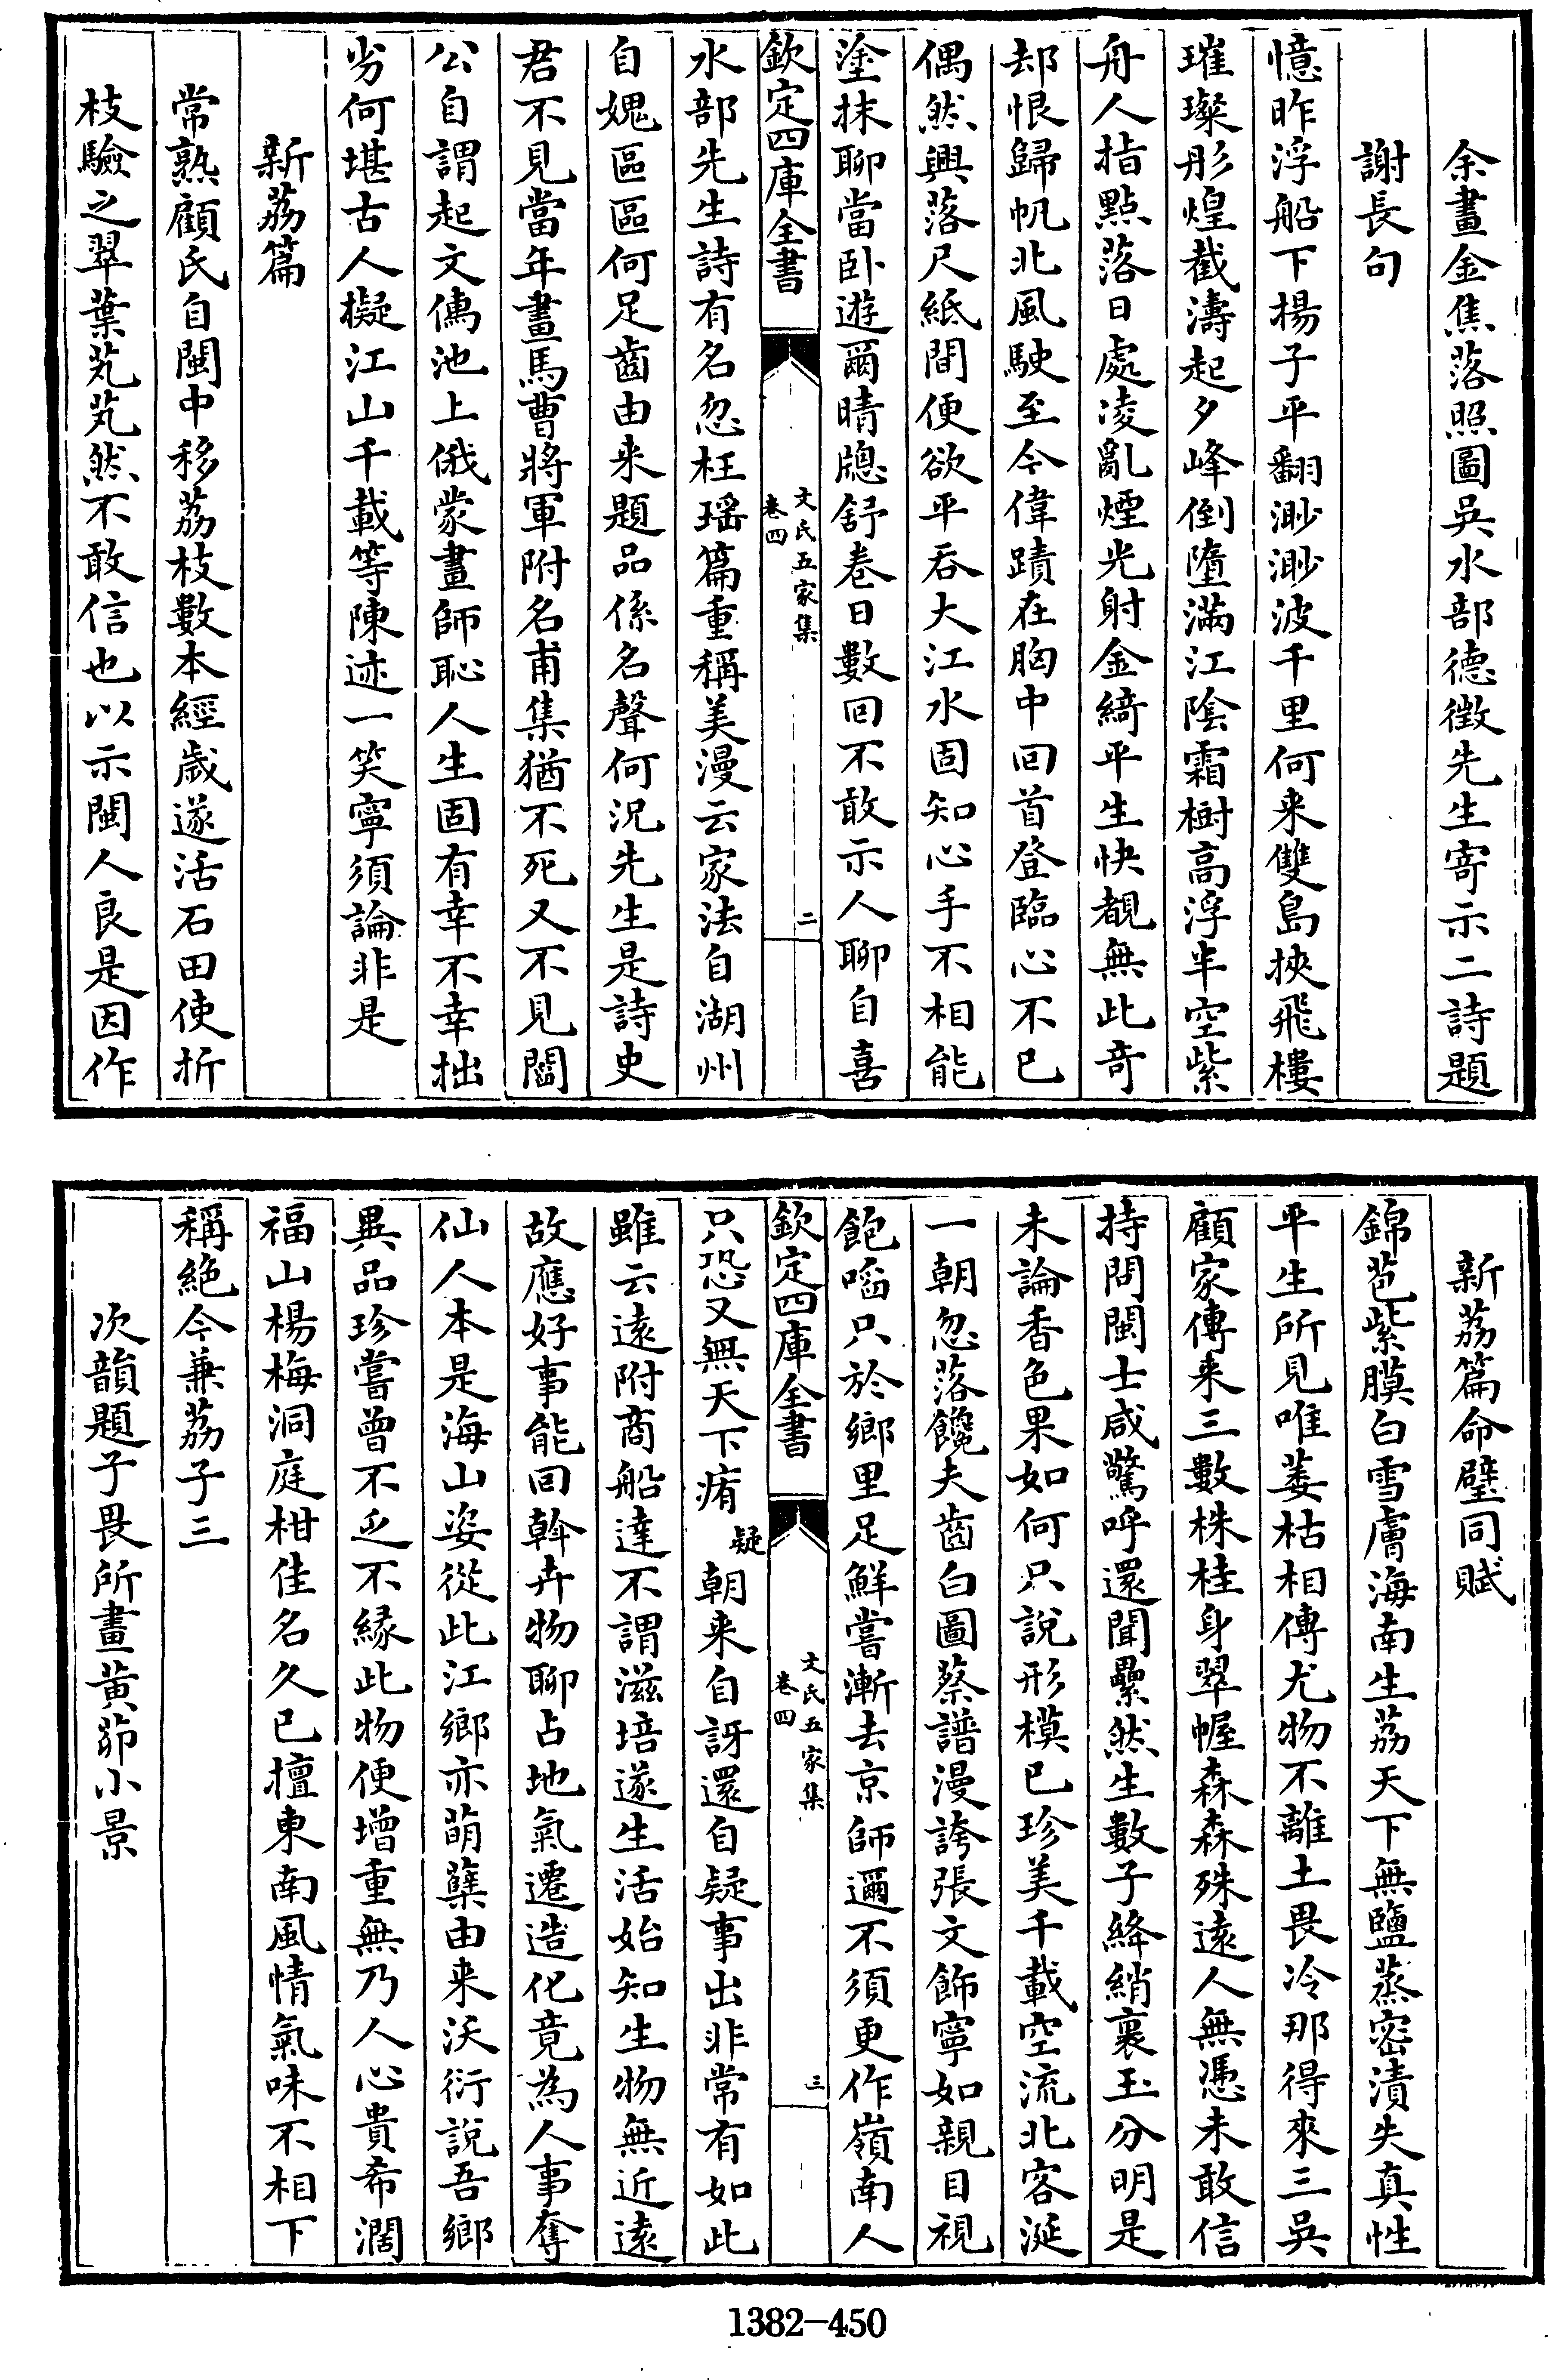 余畫金焦落照圖吳水部德徵先生寄示二詩題
謝長句
憶昨浮船下楊子平翻渺渺波千里何来雙島挾飛樓
璀璨彤煌截濤起夕峰倒墮滿江陰霜樹高浮半空紫
舟人指點落日處凌亂煙光射金綺平生快覩無此奇
却恨歸帆北風駛至今偉蹟在胸中回首登臨心不已
偶然興落尺紙間便欲平吞大江水固知心手不相能
塗抹聊當卧遊爾晴牕舒卷日數回不敢示人聊自喜
欽定四庫全書
文氏五家集
卷四
二
水部先生詩有名忽枉瑶篇重稱美漫云家法自湖州
自媿區區何足齒由来題品係名聲何況先生是詩史
君不見當年畫馬曹將軍附名甫集猶不死又不見閻
公自謂起文儁池上俄蒙畫師恥人生固有幸不幸拙
劣何堪古人擬江山千載等陳迹一笑寧須論非是
新荔篇
常熟顧氏自閩中移荔枝數本經歲遂活石田使折
枝驗之翠葉芃芃然不敢信也以示閩人良是因作
新荔篇命璧同賦
錦苞紫膜白雪膚海南生荔天下無鹽蒸密漬失真性
平生所見唯萎枯相傳尤物不離土畏冷那得來三吳
顧家傳来三數株桂身翠幄森森殊遠人無憑未敢信
持問閩士咸驚呼還聞纍然生數子絳綃裹玉分明是
未論香色果如何只說形模已珍美千載空流北客涎
一朝忽落饞夫齒白圖蔡譜漫誇張文飾寧如親目視
飽啗只於鄉里足鮮嘗漸去京師邇不須更作嶺南人
欽定四庫全書
文氏五家集
卷四
三
只恐又無天下痏疑朝来自訝還自疑事出非常有如此
雖云遠附商船達不謂滋培遂生活始知生物無近遠
故應好事能回斡卉物聊占地氣遷造化竟為人事奪
仙人本是海山姿從此江鄉亦萌蘖由来沃衍說吾鄉
異品珍嘗曾不乏不緣此物便增重無乃人心貴希濶
福山楊梅洞庭柑佳名久已擅東南風情氣味不相下
稱絶今兼荔子三
次韻題子畏所畫黄茆小景
1382-450